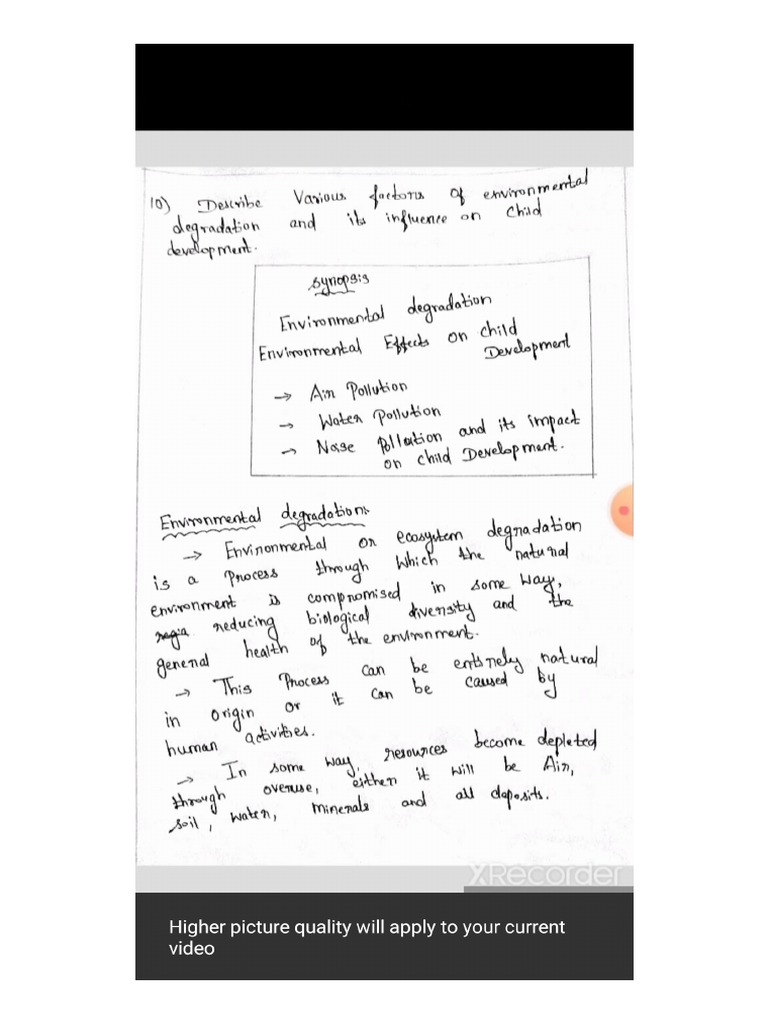 10) Describe Various factors of environmental
degradation and its influence on child
development.
Synopsis
Environmental degradation
Environmental Effects on child
Development
→ Air Pollution
→ Water Pollution
→ Noise Pollution and its impact
on child Development.
Environmental degradation:
→ Environmental or ecosystem degradation
is a process through which the natural
environment is compromised in some way,
reducing biological diversity and the
general health of the environment.
→ This Process can be entirely natural
in origin or it can be caused by
human activities.
→ In some way, resources become depleted
through overuse, either it will be Air,
soil, water, minerals and all deposits.
XRecorder
Higher picture quality will apply to your current
video